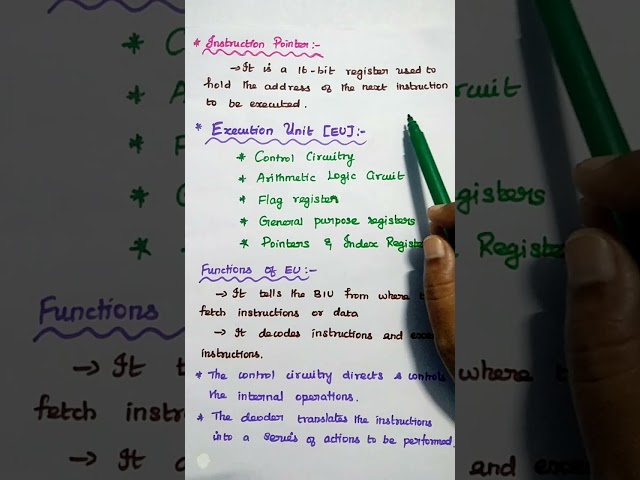 * Instruction Pointer:-
→ It is a 16-bit register used to
hold the address of the next instruction
to be executed.
* Execution Unit [EU]:-
* Control Circuitry
* Arithmetic Logic Circuit
* Flag register
* General purpose registers
* Pointers & Index Regist
Functions of EU:-
→ It tells the BIU from where
fetch instructions or data
→ It decodes instructions and
instructions.
* The control circuitry directs & controls
the internal operations.
* The deoder translates the instructions
into a series of actions to be performed.